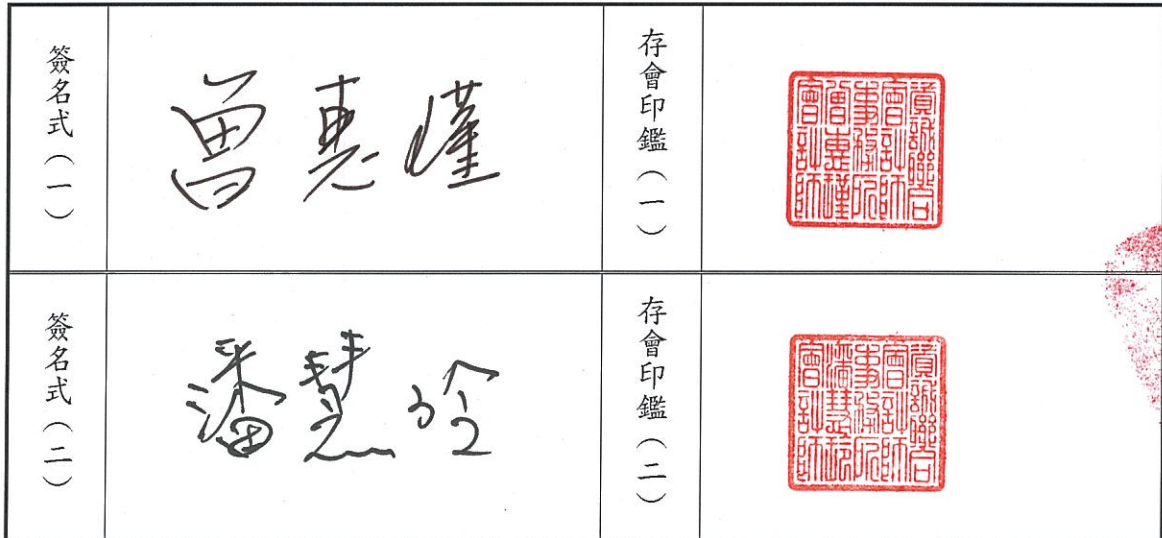 簽名式（一）
曾惠瑾
存會印鑑（一）
資誠聯合
會計師
事務所
曾惠瑾
會計師
簽名式（二）
潘慧玲
存會印鑑（二）
資誠聯合
會計師
事務所
潘慧玲
會計師